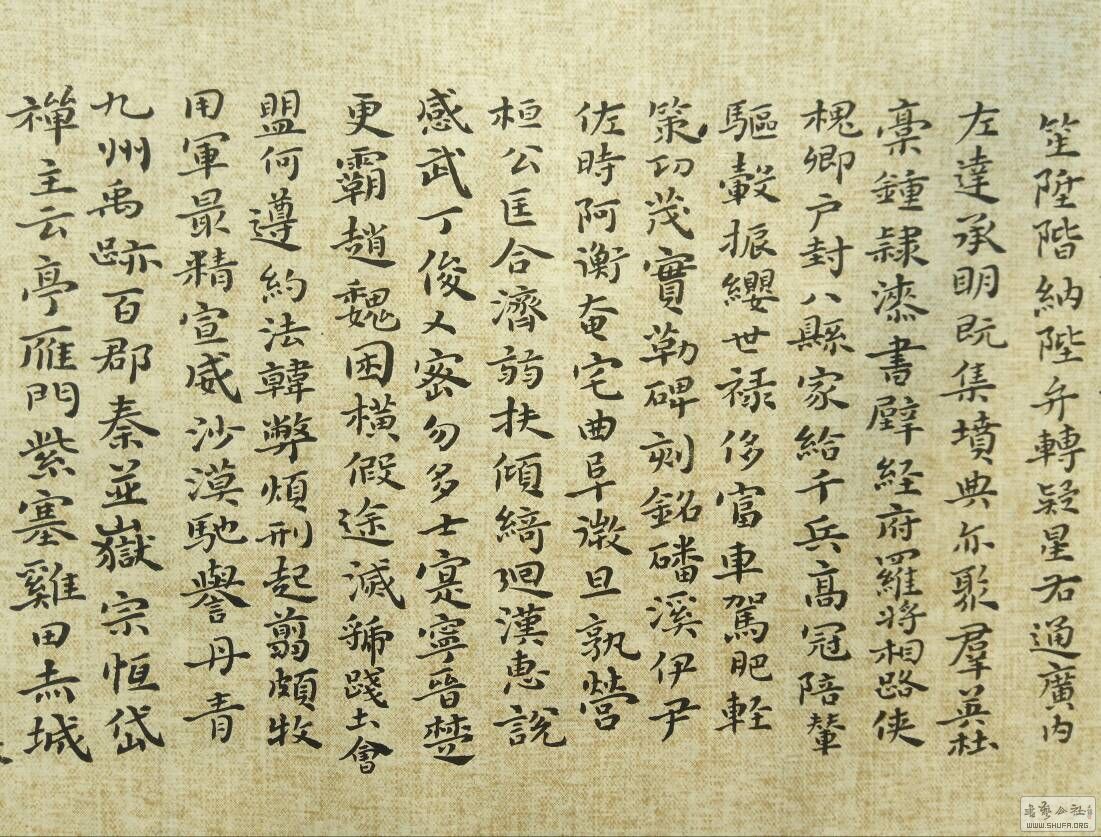 笙陞階納陛弁轉疑星右通廣内
左達承明既集墳典亦聚羣英杜
稾鍾隸漆書壁経府羅將相路俠
槐卿户封八縣家給千兵高冠陪輦
驅轂振纓世禄侈富車駕肥軽
策功茂實勒碑刻銘磻溪伊尹
佐時阿衡奄宅曲阜微旦孰營
桓公匡合濟弱扶傾綺廻漢惠說
感武丁俊乂密勿多士寔寧晉楚
更霸趙魏困橫假途滅虢踐土會
盟何遵約法韓弊煩刑起翦頗牧
用軍最精宣威沙漠馳譽丹青
九州禹跡百郡秦並嶽宗恒岱
禪主云亭雁門紫塞雞田赤城
WWW.SHUFA.ORG